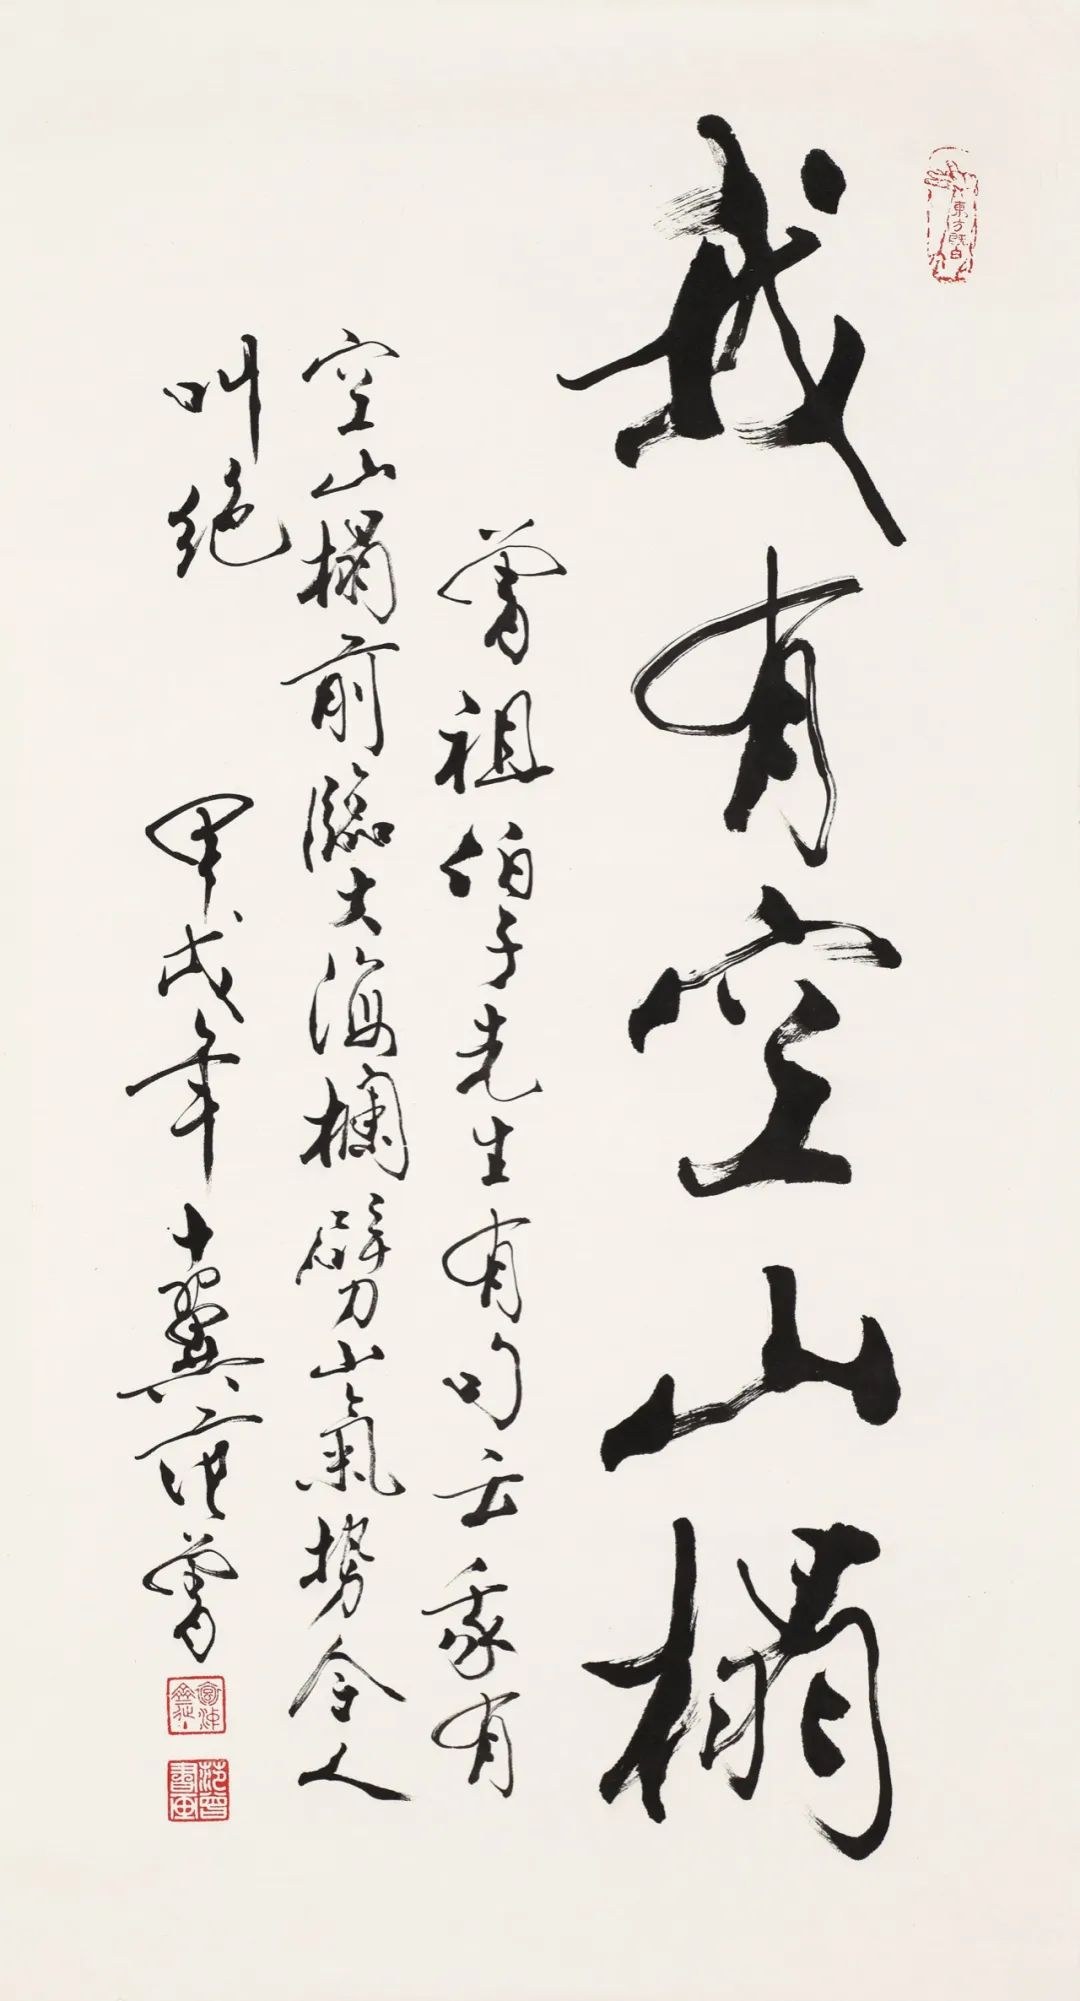 我有空山榻
曾祖伯子先生有句云我有
空山榻前臨大海欄劈山氣勢令人
叫絕
甲戌年十翼范曾
東方既白
范曾書畫